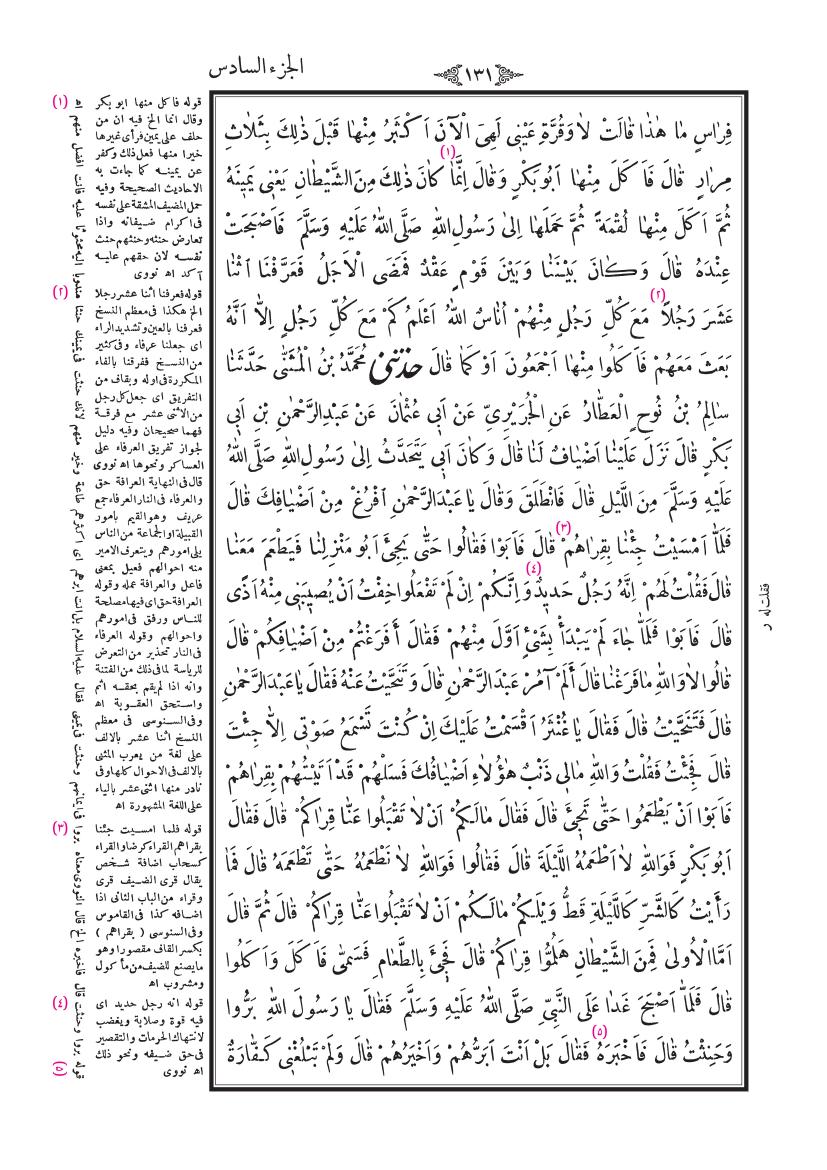 الجزء السادس
١٣١
فِرَاسٍ مَا هٰذَا قَالَتْ لَا وَقُرَّةِ عَيْنِي لَهِيَ الْآنَ اَكْثَرُ مِنْهَا قَبْلَ ذٰلِكَ بِثَلَاثِ
مِرَارٍ قَالَ فَاَكَلَ مِنْهَا اَبُو بَكْرٍ وَقَالَ اِنَّمَا كَانَ ذٰلِكَ مِنَ الشَّيْطَانِ يَعْنِي يَمِينَهُ
ثُمَّ اَكَلَ مِنْهَا لُقْمَةً ثُمَّ حَمَلَهَا اِلَى رَسُولِ اللّٰهِ صَلَّى اللّٰهُ عَلَيْهِ وَسَلَّمَ فَاَصْبَحَتْ
عِنْدَهُ قَالَ وَكَانَ بَيْنَنَا وَبَيْنَ قَوْمٍ عَقْدٌ فَمَضَى الْاَجَلُ فَعَرَّفْنَا اثْنَا
عَشَرَ رَجُلًا مَعَ كُلِّ رَجُلٍ مِنْهُمْ اُنَاسٌ اللّٰهُ اَعْلَمُ كَمْ مَعَ كُلِّ رَجُلٍ اِلَّا اَنَّهُ
بَعَثَ مَعَهُمْ فَاَكَلُوا مِنْهَا اَجْمَعُونَ اَوْ كَمَا قَالَ حدثني مُحَمَّدُ بْنُ الْمُثَنَّى حَدَّثَنَا
سَالِمُ بْنُ نُوحٍ الْعَطَّارُ عَنِ الْجُرَيْرِيِّ عَنْ اَبِي عُثْمَانَ عَنْ عَبْدِ الرَّحْمٰنِ بْنِ اَبِي
بَكْرٍ قَالَ نَزَلَ عَلَيْنَا اَضْيَافٌ لَنَا قَالَ وَكَانَ اَبِي يَتَحَدَّثُ اِلَى رَسُولِ اللّٰهِ صَلَّى اللّٰهُ
عَلَيْهِ وَسَلَّمَ مِنَ اللَّيْلِ قَالَ فَانْطَلَقَ وَقَالَ يَا عَبْدَ الرَّحْمٰنِ اَفْرِغْ مِنْ اَضْيَافِكَ قَالَ
فَلَمَّا اَمْسَيْتُ جِئْنَا بِقِرَاهُمْ قَالَ فَاَبَوْا فَقَالُوا حَتَّى يَجِيئَ اَبُو مَنْزِلِنَا فَيَطْعَمَ مَعَنَا
قَالَ فَقُلْتُ لَهُمْ اِنَّهُ رَجُلٌ حَدِيدٌ وَاِنَّكُمْ اِنْ لَمْ تَفْعَلُوا خِفْتُ اَنْ يُصِيبَنِي مِنْهُ اَذًى
قَالَ فَاَبَوْا فَلَمَّا جَاءَ لَمْ يَبْدَأْ بِشَيْئٍ اَوَّلَ مِنْهُمْ فَقَالَ أَفَرَغْتُمْ مِنْ اَضْيَافِكُمْ قَالَ
قَالُوا لَا وَاللّٰهِ مَا فَرَغْنَا قَالَ أَلَمْ آمُرْ عَبْدَ الرَّحْمٰنِ قَالَ وَتَنَحَّيْتُ عَنْهُ فَقَالَ يَا عَبْدَ الرَّحْمٰنِ
قَالَ فَتَنَحَّيْتُ قَالَ فَقَالَ يَا غُنْثَرُ اَقْسَمْتُ عَلَيْكَ اِنْ كُنْتَ تَسْمَعُ صَوْتِي اِلَّا جِئْتَ
قَالَ فَجِئْتُ فَقُلْتُ وَاللّٰهِ مَالِي ذَنْبٌ هٰؤُلَاءِ اَضْيَافُكَ فَسَلْهُمْ قَدْ اَتَيْتُهُمْ بِقِرَاهُمْ
فَاَبَوْا اَنْ يَطْعَمُوا حَتَّى تَجِيئَ قَالَ فَقَالَ مَالَكُمْ اَنْ لَا تَقْبَلُوا عَنَّا قِرَاكُمْ قَالَ فَقَالَ
اَبُو بَكْرٍ فَوَاللّٰهِ لَا اَطْعَمُهُ اللَّيْلَةَ قَالَ فَقَالُوا فَوَاللّٰهِ لَا نَطْعَمُهُ حَتَّى تَطْعَمَهُ قَالَ فَمَا
رَأَيْتُ كَالشَّرِّ كَاللَّيْلَةِ قَطُّ وَيْلَكُمْ مَالَكُمْ اَنْ لَا تَقْبَلُوا عَنَّا قِرَاكُمْ قَالَ ثُمَّ قَالَ
اَمَّا الْاُولَى فَمِنَ الشَّيْطَانِ هَلُمُّوا قِرَاكُمْ قَالَ فَجِيئَ بِالطَّعَامِ فَسَمَّى فَاَكَلَ وَاَكَلُوا
قَالَ فَلَمَّا اَصْبَحَ غَدَا عَلَى النَّبِيِّ صَلَّى اللّٰهُ عَلَيْهِ وَسَلَّمَ فَقَالَ يَا رَسُولَ اللّٰهِ بَرُّوا
وَحَنِثْتُ قَالَ فَاَخْبَرَهُ فَقَالَ بَلْ اَنْتَ اَبَرُّهُمْ وَاَخْيَرُهُمْ قَالَ وَلَمْ تَبْلُغْنِي كَفَّارَةٌ
فقلت له ر
(١) قوله فاكل منها ابو بكر
وقال انما الخ فيه ان من
حلف على يمين فرأى غيرها
خيرا منها فعل ذلك وكفر
عن يمينه كما جاءت به
الاحاديث الصحيحة وفيه
حمل المضيف المشقة على نفسه
فى اكرام ضيفانه واذا
تعارض حنثه وحنثهم حنث
نفسه لان حقهم عليه
آكد اه نووى
(٢) قوله فعرفنا اثنا عشر رجلا
الخ هكذا فى معظم النسخ
فعرفنا بالعين وتشديد الراء
اى جعلنا عرفاء وفى كثير
من النسخ ففرقنا بالفاء
المكررة فى اوله وبقاف من
التفريق اى جعل كل رجل
من الاثنى عشر مع فرقة
فهما صحيحان وفيه دليل
لجواز تفريق العرفاء على
العساكر ونحوها اه نووى
قال فى النهاية العرافة حق
والعرفاء فى النار العرفاء جمع
عريف وهو القيم بامور
القبيلة او الجماعة من الناس
يلى امورهم ويتعرف الامير
منه احوالهم فعيل بمعنى
فاعل والعرافة عمله وقوله
العرافة حق اى فيها مصلحة
للناس ورفق فى امورهم
واحوالهم وقوله العرفاء
فى النار تحذير من التعرض
للرياسة لما فى ذلك من الفتنة
وانه اذا لم يقم بحقه اثم
واستحق العقوبة اه
وفى السنوسى فى معظم
النسخ اثنا عشر بالالف
على لغة من يعرب المثنى
بالالف فى الاحوال كلها وفى
نادر منها اثنى عشر بالياء
على اللغة المشهورة اه
(٣) قوله فلما امسيت جئنا
بقراهم القراء كرضا والقراء
كسحاب اضافة شخص
يقال قرى الضيف قرى
وقراء من الباب الثانى اذا
اضافه كذا فى القاموس
وفى السنوسى ( بقراهم )
بكسر القاف مقصورا وهو
ما يصنع للضيف من مأكول
ومشروب اه
(٤) قوله انه رجل حديد اى
فيه قوة وصلابة ويغضب
لانتهاك الحرمات والتقصير
فى حق ضيفه ونحو ذلك
اه نووى
(٥) قوله بروا وحنثت قال فاخبره الخ قال النووى معناه بروا فى ايمانهم وحنثت فى يمينى فقال عليه السلام بل انت ابرهم اى اكثرهم طاعة وخير منهم لانك حنثت فى يمينك حنثا مندوبا اليه محثوثا عليه فانت افضل منهم اه